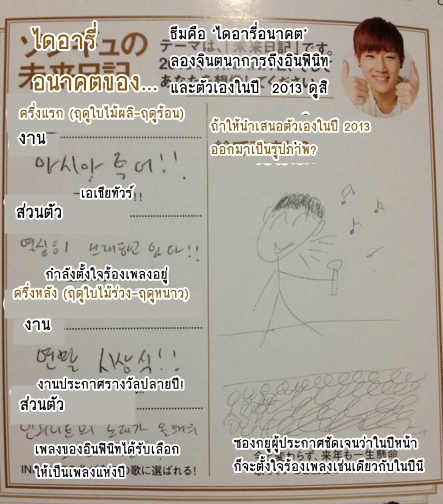 ไดอารี่
อนาคตของ...
ソンギュの
未来日記
ธีมคือ 'ไดอารี่อนาคต'
ลองจินตนาการถึงอินฟินิท
และตัวเองในปี 2013 ดูสิ
テーマは、「未来日記」です。
ครึ่งแรก (ฤดูใบไม้ผลิ-ฤดูร้อน)
งาน
아시아 투어!!
เอเชียทัวร์
ส่วนตัว
열심히 노래하고 있다!!
กำลังตั้งใจร้องเพลงอยู่
ครึ่งหลัง (ฤดูใบไม้ร่วง-ฤดูหนาว)
งาน
연말 시상식!!
งานประกาศรางวัลปลายปี!
ส่วนตัว
인피니트의 노래가 올해의
เพลงของอินฟินิทได้รับเลือก
ให้เป็นเพลงแห่งปี
の歌に選ばれる!
ถ้าให้นำเสนอตัวเองในปี 2013
ออกมาเป็นรูปภาพ?
ซองกยูผู้ประกาศชัดเจนว่าในปีหน้า
ก็จะตั้งใจร้องเพลงเช่นเดียวกับในปีนี้
来年も一生懸命